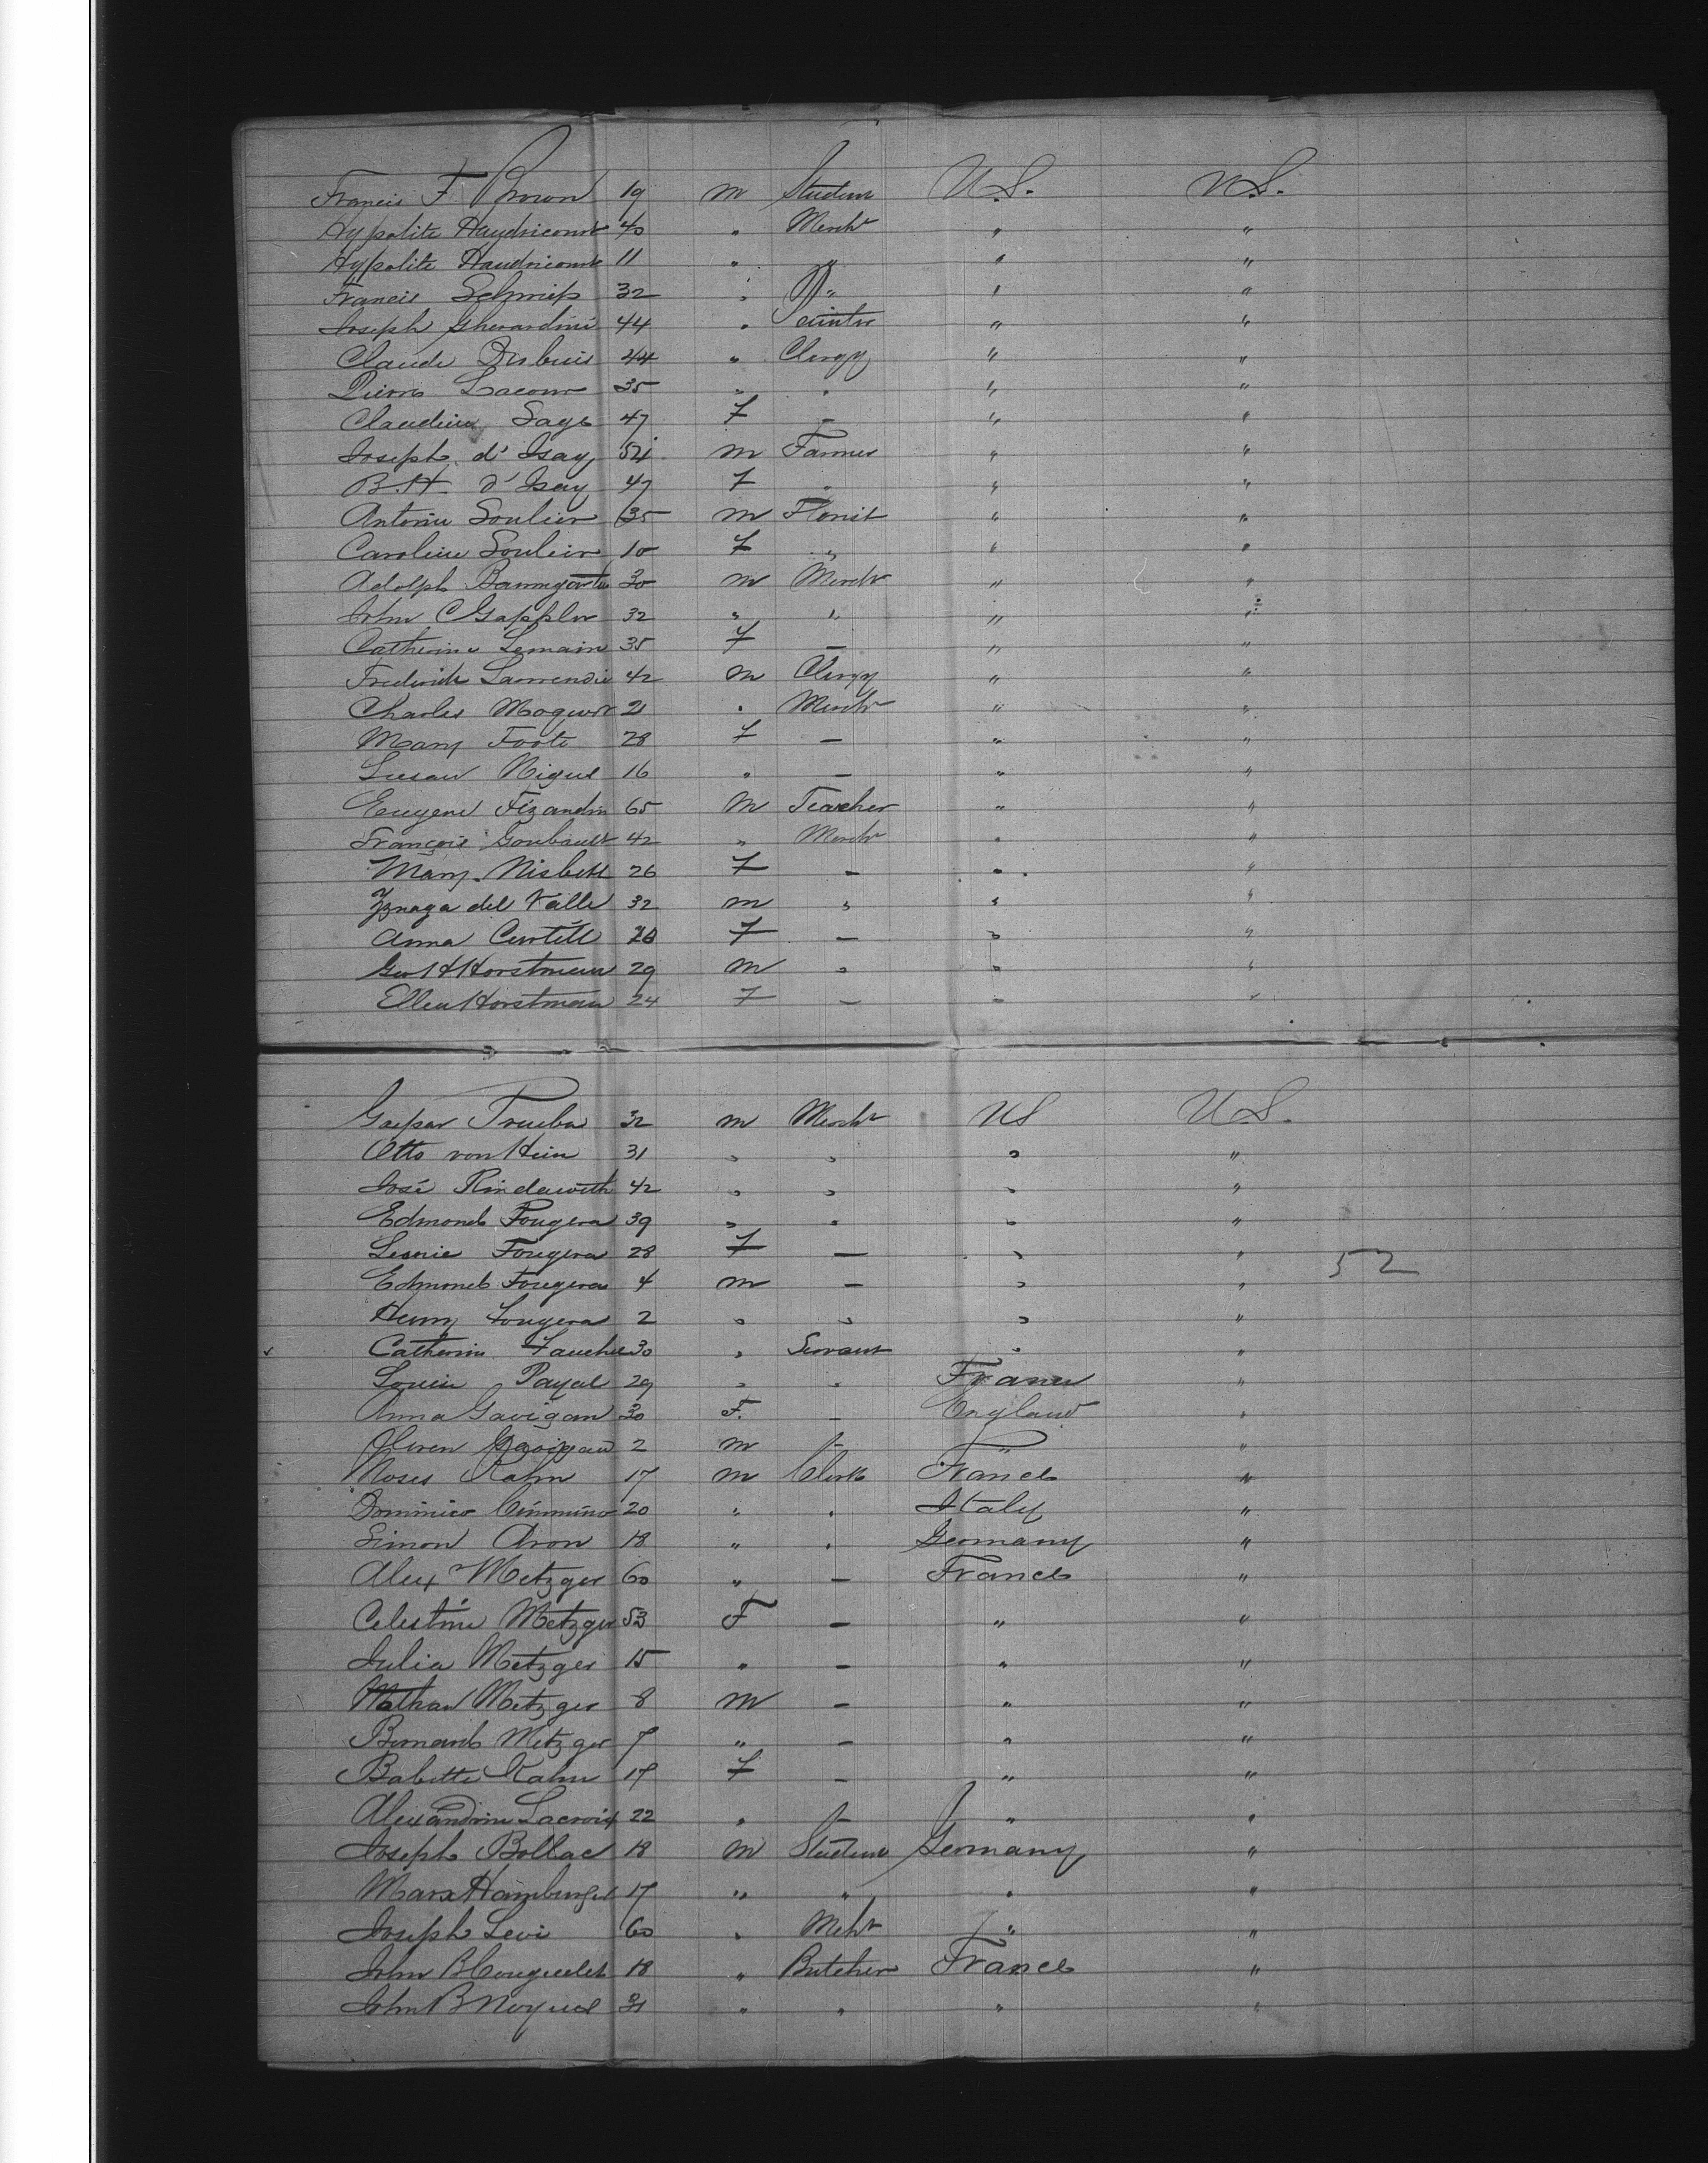 Francis F. Brown 19 m Student U.S. U.S.
Hypolite Haudricourt 40 " Mercht " "
Hypolite Haudricourt 11 " " " "
Francis Schmidt 32 " " " "
Joseph Gherardini 44 " Painter " "
Claude Dubuis 44 " Clergy " "
Pierre Lacour 35 " " " "
Claudine Sage 47 F — " "
Joseph d'Isay 54 m Farmer " "
B. H. d'Isay 47 F " " "
Antoine Soulier 35 m Florist " "
Caroline Soulier 10 F " " "
Adolph Baumgarten 30 m Mercht " "
John C Gappler 32 " " " "
Catherine Lemain 35 F — " "
Frederick 42 m Clergy " "
Charles 21 " Mercht " "
Mary Foote 28 F — " "
Susan 16 " — " "
Eugene Fezandin 65 m Teacher " "
François Goubault 42 " Mercht " "
Mary Nisbett 26 F — " "
Yznaga del Valle 32 m " " "
Anna Curtett F — " "
Geo H Horstman 29 m " " "
Ellen Horstman 24 F — " "
Gaspar Trueba 32 m Mercht US U.S.
Otto von Hein 31 " " " "
José 42 " " " "
Edmond Fougera 39 " " " "
Leonie Fougera 28 F — " " 52
Edmond Fougera 4 m — " "
Henry Fougera 2 " " " "
Catherine 30 " Servant " "
Louis Payal 29 " " France "
Anna Gavigan 30 F. — England "
Gavigan 2 m — " "
Moses Kahn 17 m Clerk France "
Dominico 20 " " Italy "
Simon Aron 18 " " Germany "
Alex Metzger 60 " — France "
Celestine Metzger 53 F — " "
Julia Metzger 15 " — " "
Nathan Metzger 8 m — " "
Bernard Metzger 7 " — " "
Babette Kahn 17 F — " "
Alexandrine Lacroix 22 " — " "
Joseph Bollac 18 m Student Germany "
Marx Hamburger 17 " " " "
Joseph Levi 60 " Mcht " "
John B 18 " Butcher France "
John B Noyuel " " " "